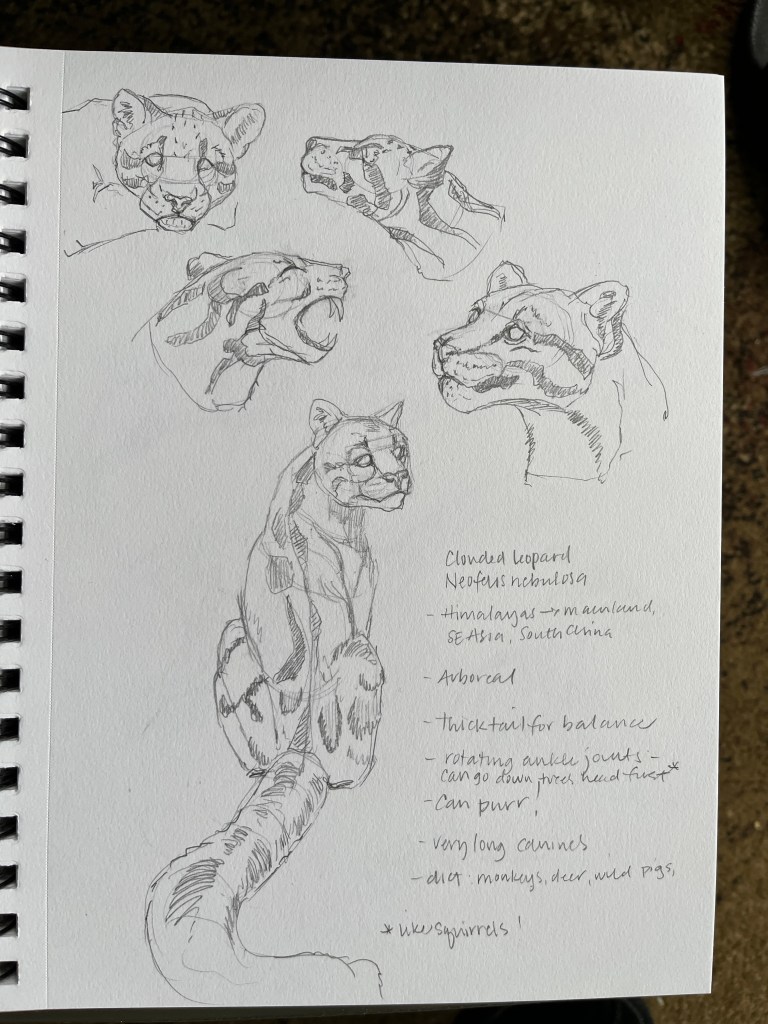 Clouded leopard
Neofelis nebulosa
- Himalayas → mainland,
SE Asia, South China
- Arboreal
- thick tail for balance
- rotating ankle joints -
can go down trees head first*
- can purr,
- very long canines
- diet: monkeys, deer, wild pigs,
* like squirrels!